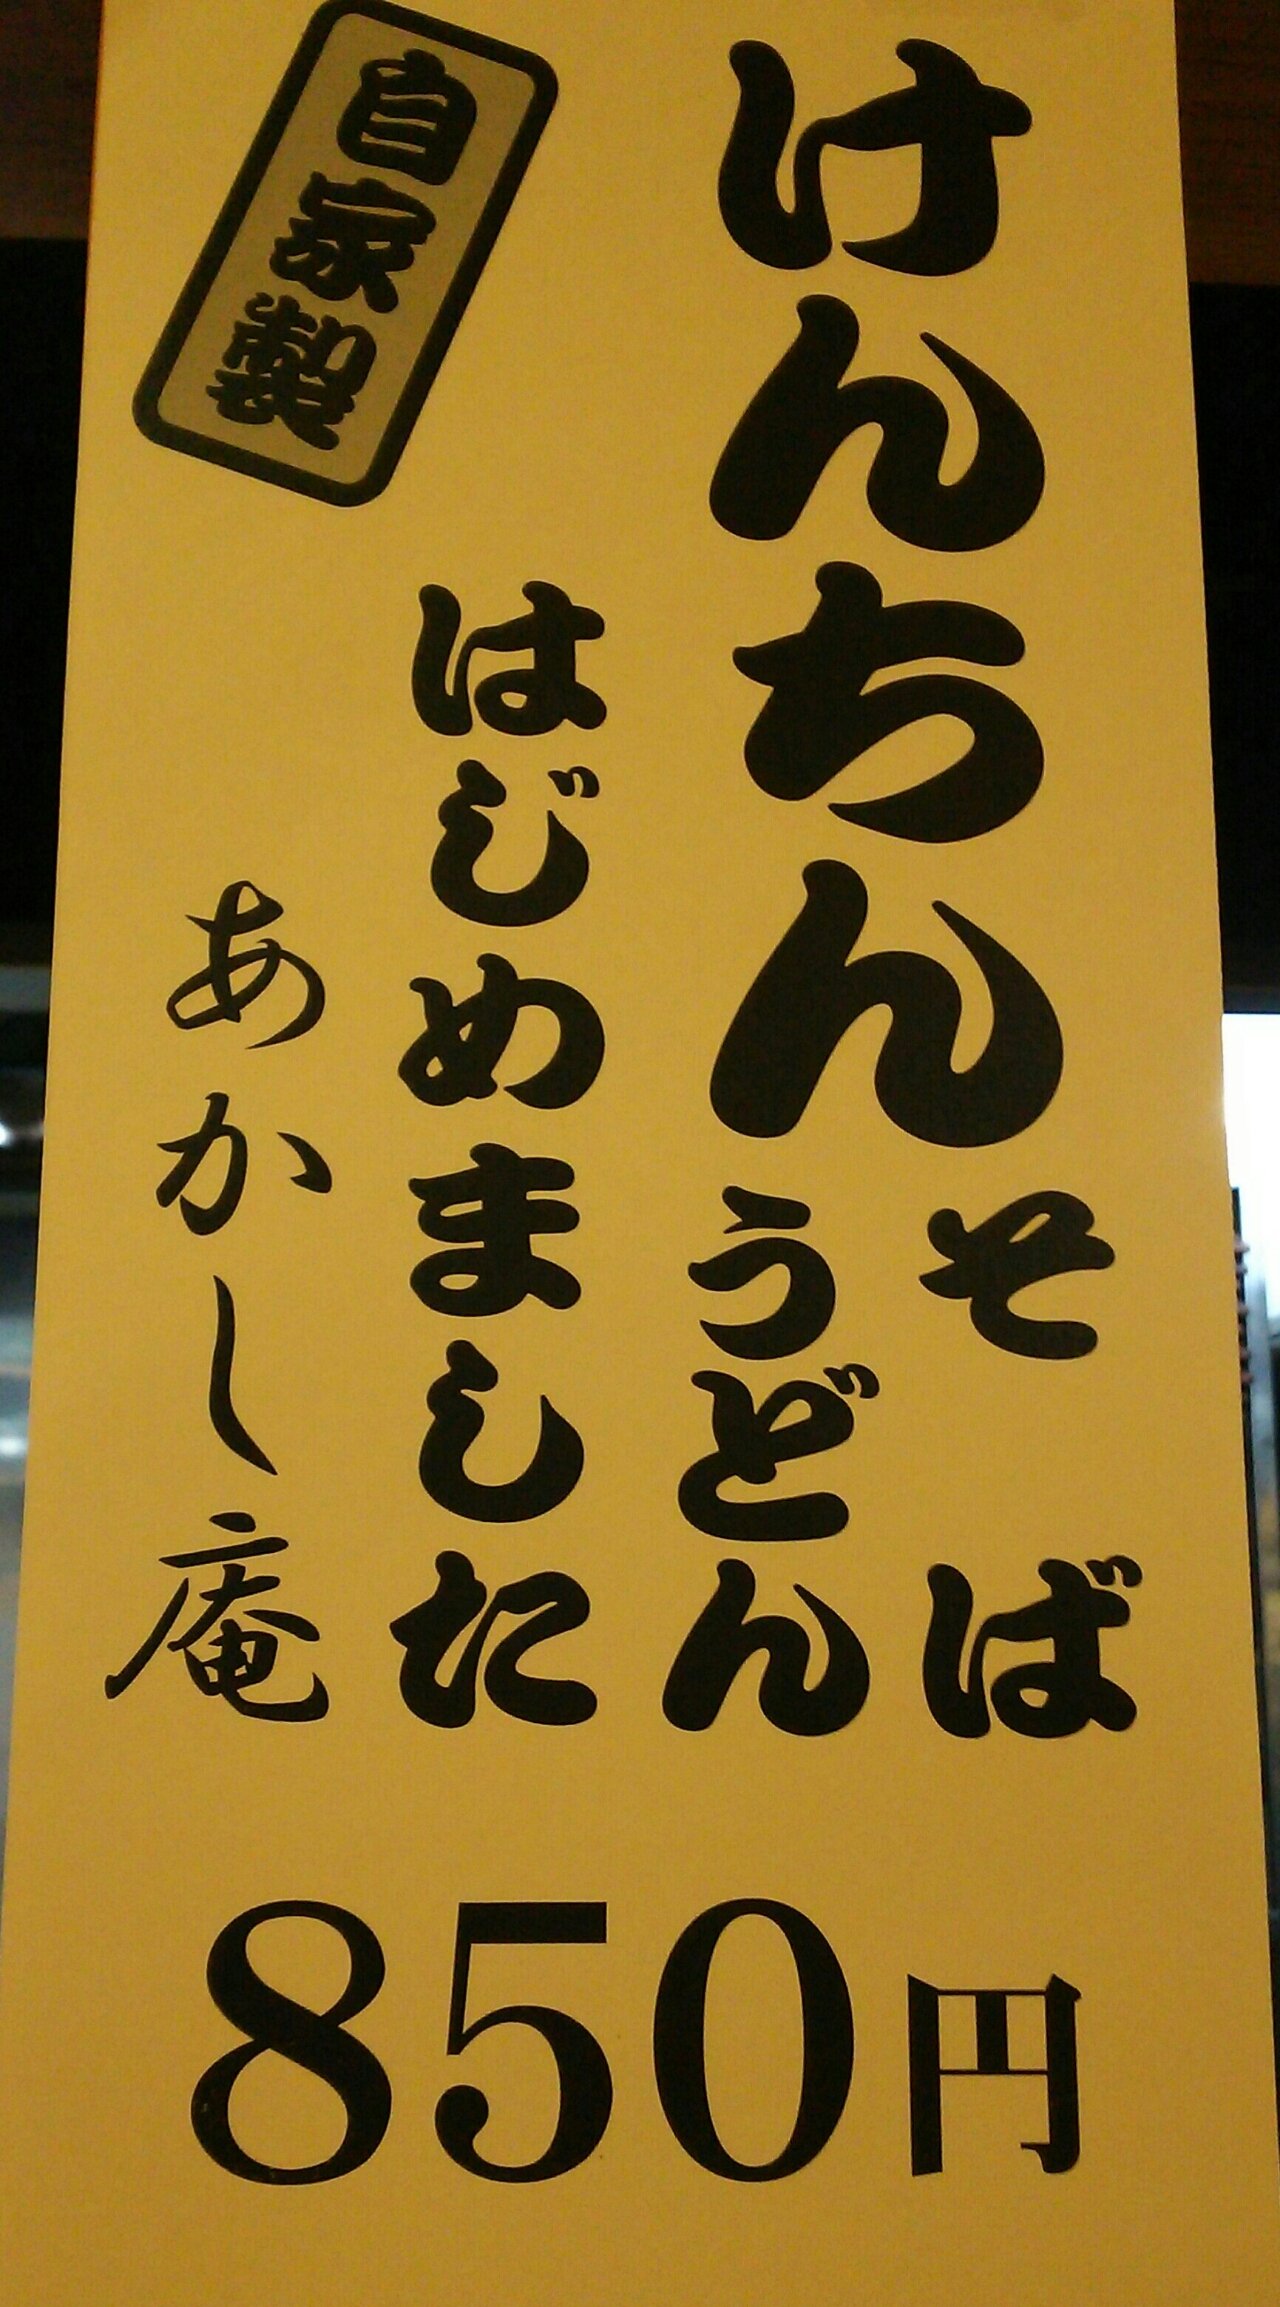 けんちん
そば
うどん
はじめました
自家製
あかし庵
850円